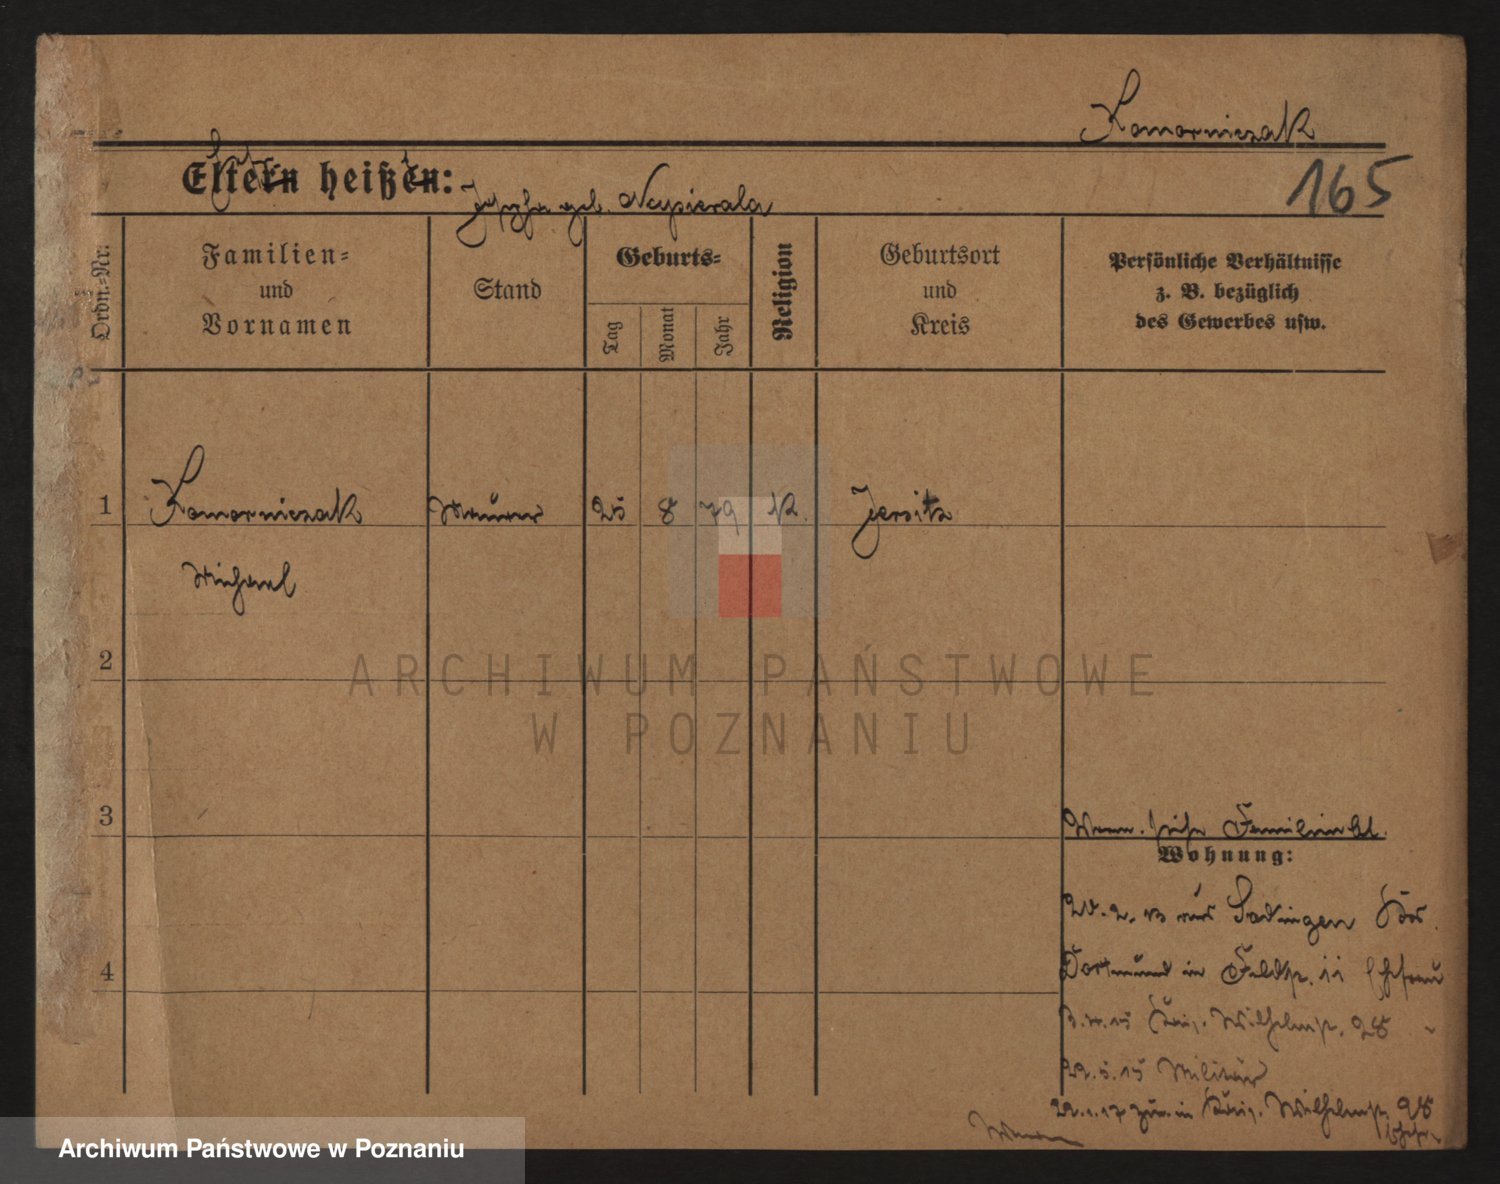 Komorniczak
165
Eltern heißen:
geb. Napierala
Ordn.-Nr.
Familien-
und
Vornamen
Stand
Geburts-
Tag
Monat
Jahr
Religion
Geburtsort
und
Kreis
Persönliche Verhältnisse
z. B. bezüglich
des Gewerbes usw.
1
Komorniczak
Maurer
25
8
79
K.
Jersitz
Michael
2
3
siehe Familienbl.
Wohnung:
4
20.2.13 Bodingen
Dortmund in Feldstr. 11 Ehefrau
Wilhelmstr. 28
15 Militär
22.1.17 in Wilhelmstr. 28
ARCHIWUM PAŃSTWOWE
W POZNANIU
Archiwum Państwowe w Poznaniu